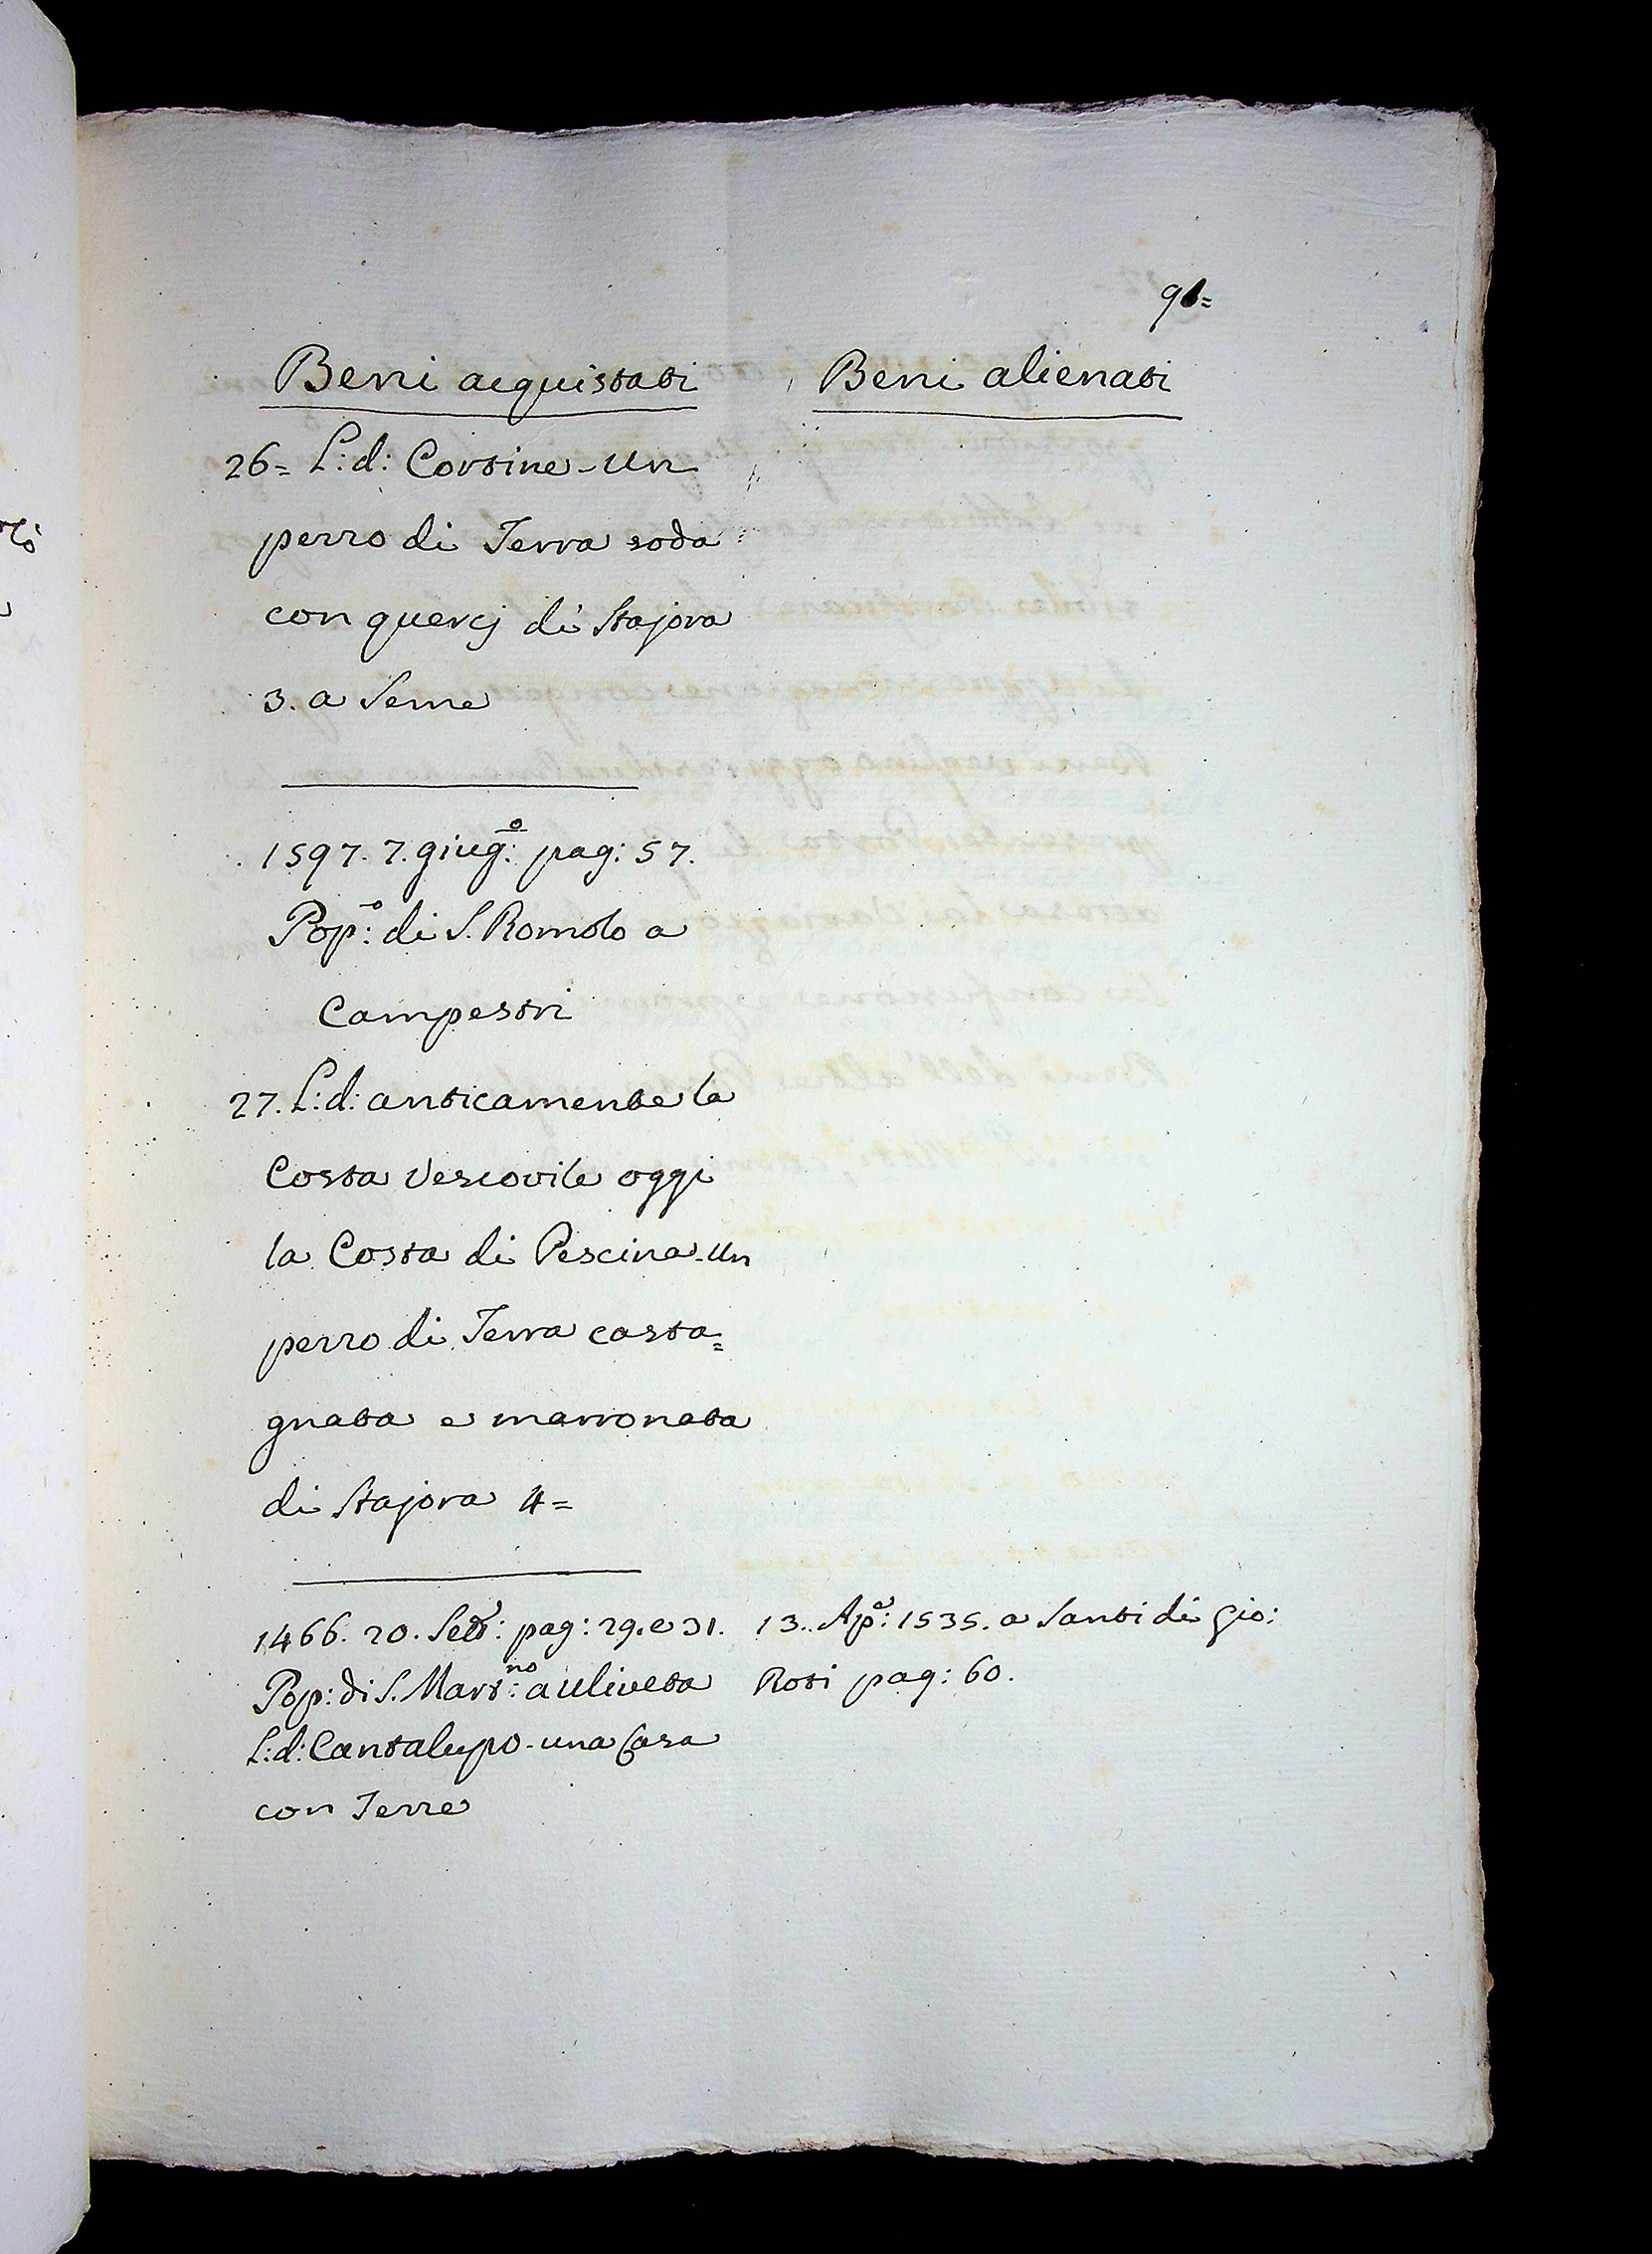 91=
Beni acquistati
26= L:d: Cortine - Un
pezzo di Terra soda
con quercj di Stajora
3. a Seme
1597. 7. giug:o pag: 57.
Pop:o di S. Romolo a
Campestri
27. L:d: anticamente la
Costa Vescovile oggi
la Costa di Pescina - Un
pezzo di Terra casta=
gnata e marronata
di Stajora 4=
1466. 20. Sett:e pag: 29. e 31.
Pop: di S. Mart:no a Uliveta
L:d: Cantalupo - una Casa
con Terre
Beni alienati
13. Ap:e 1535. a Santi di Gio:
Rosi pag: 60.